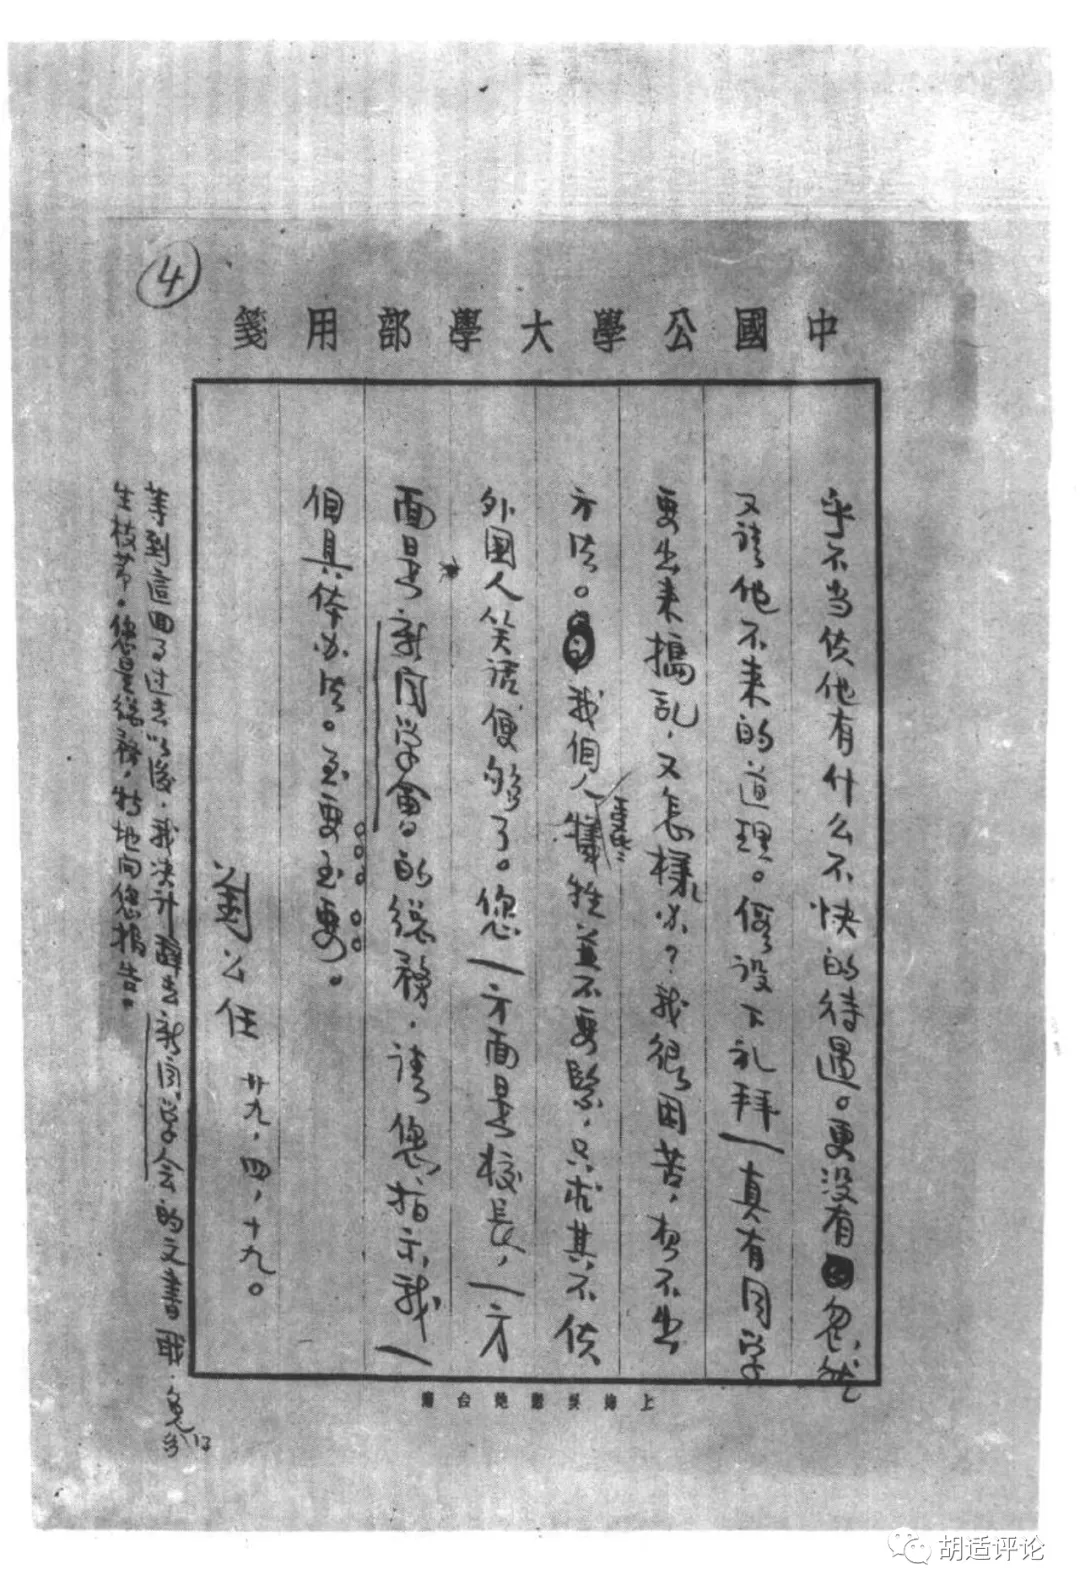 4
中國公學大學部用箋
乎不当使他有什么不快的待遇。更没有忽然
又請他不来的道理。假設下礼拜一真有同学
要出来搗乱，又怎樣办？我很困苦，想不出
方法。我個人犧牲並不要緊，只求其不使
外國人笑话便够了。您一方面是校長，一方
面是新同学會的總務，請您指示我一
個具体办法。至要至要。
劉公任 廿九，四，十九。
等到這回事过去以後，我决计辭去新同学会的文書職，免得
生枝节。您是總務，特地向您报告。
上海吳淞炮台灣
胡适评论